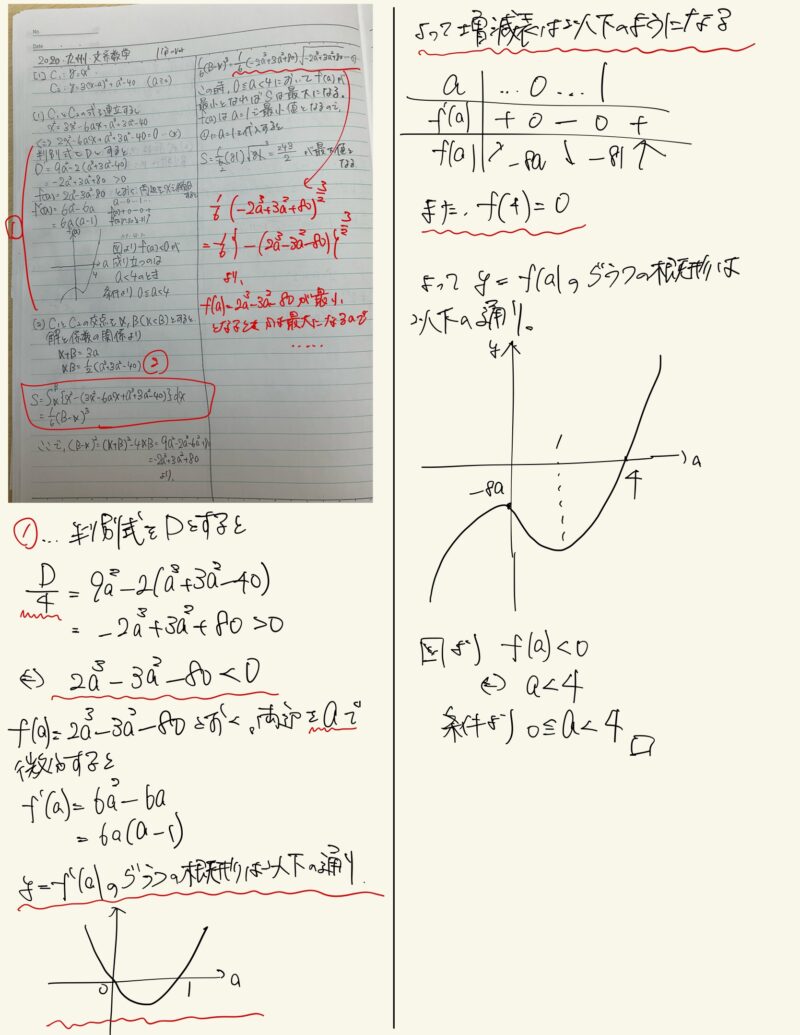 2020 九州 文系数学
[1] C₁: y=x²
C₂: y=3(x-a)²+a³-40 (a≧0)
(1) C₁とC₂の式を連立すると
x²=3x²-6ax+3a²+a³-40
⇔ 2x²-6ax+a³+3a²-40=0 …(※)
判別式をDとすると
D=9a²-2(a³+3a²-40)
=-2a³+3a²+80>0
f(a)=2a³-3a²-80
f'(a)=6a²-6a
=6a(a-1)
図よりf(a)<0が
成り立つのは
a<4のとき
条件より 0≦a<4
(2) C₁とC₂の交点をα,β(α<β)とすると
解と係数の関係より
α+β=3a
αβ=½(a³+3a²-40)
②
S=∫{x²-(3x²-6ax+a³+3a²-40)}dx
=⅙(β-α)³
ここで, (β-α)²=(α+β)²-4αβ=9a²-2a³-6a²+80
=-2a³+3a²+80
より,
⅙(β-α)³=⅙(-2a³+3a²+80)√-2a³+3a²+80
この時, 0≦a<4においてf(a)が
最小となればSは最大になる。
f(a)はa=1で最小値となるので,
S=½(81)√81=243/2 が最大値と
なる
①
⅙(-2a³+3a²+80)^(3/2)
=⅙{-(2a³-3a²-80)}^(3/2)
より,
f(a)=2a³-3a²-80が最小,
となるときSは最大になるので
……
①… 判別式をDとすると
D/4=9a²-2(a³+3a²-40)
=-2a³+3a²+80>0
⇔ 2a³-3a²-80<0
f(a)=2a³-3a²-80とおく。両辺をaで
微分すると
f'(a)=6a²-6a
=6a(a-1)
y=f'(a)のグラフの概形は以下の通り.
0 1 a
よって増減表は以下のようになる
a … 0 … 1
f'(a) + 0 - 0 +
f(a) ↗ -80 ↓ -81 ↑
また, f(4)=0
よって y=f(a)のグラフの概形は
以下の通り。
y
a
-80
4
図より f(a)<0
⇔ a<4
条件より 0≦a<4 □